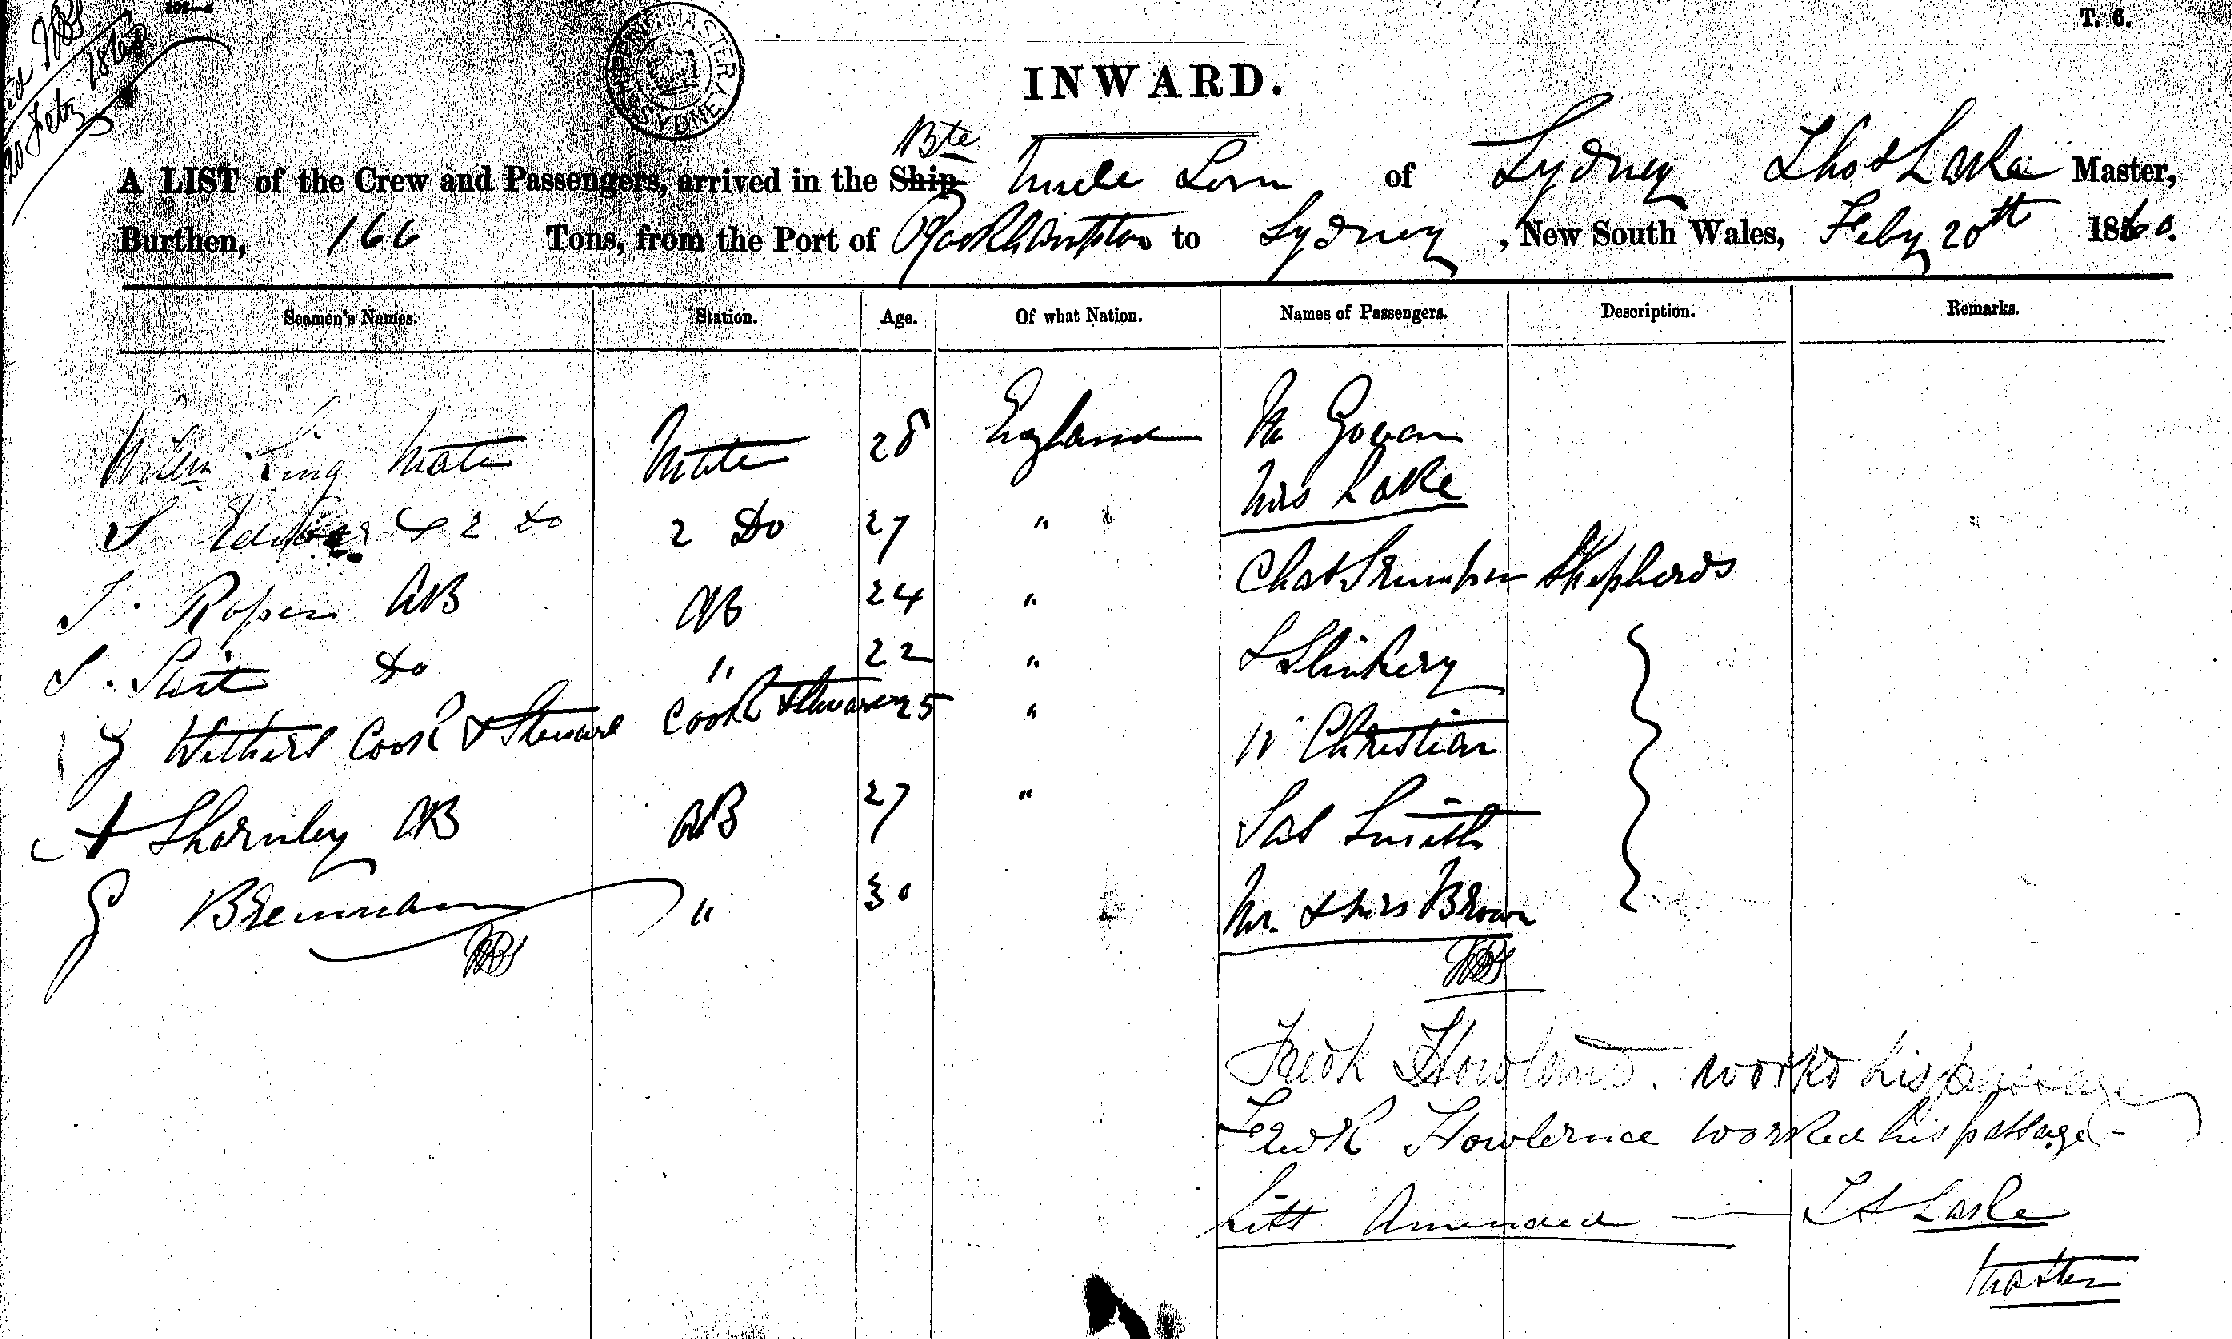 T. 6.
20 Feby 1860
INWARD.
Bte
A LIST of the Crew and Passengers, arrived in the Ship Uncle Tom of Sydney Thos Lake Master,
Burthen, 166 Tons, from the Port of Rockhampton to Sydney, New South Wales, Feby 20th 1860.
Seamen's Names. Station. Age. Of what Nation. Names of Passengers. Description. Remarks.
Willm King Mate Mate 28 England Mr Govan
Mrs Lake
2 Do 2 Do 27 "
Chas Shepherds
J. Roper AB AB 24 "
Do " 22 "
J Slinkery
J Withers Cook & Steward Cook & Steward 25 "
W Christian
A Thornley AB AB 27 "
Jas Smith
J Brennan " 30
Mr. & Mrs Brown
Fredk Howland. workd his passage
Fredk worked his passage -
List Amended — T H Lake
Master